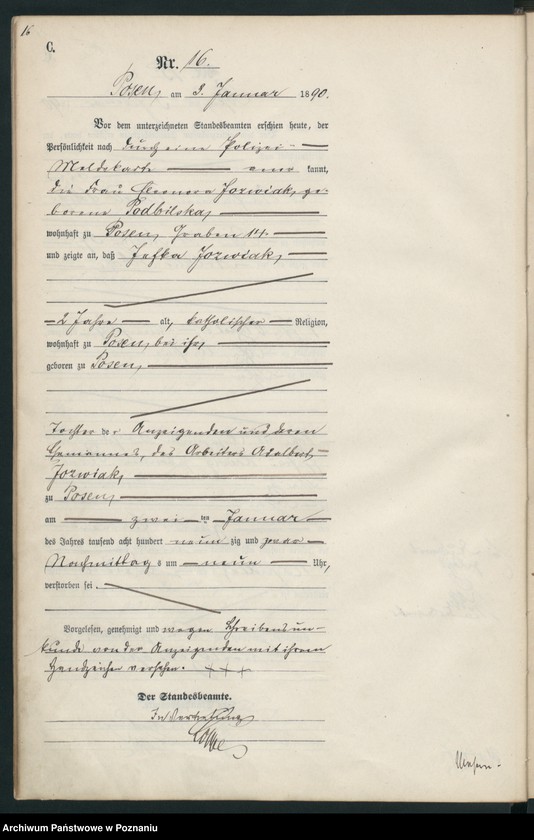 16
C.
Nr. 16.
Posen, am 3. Januar 1890.
Vor dem unterzeichneten Standesbeamten erschien heute, der
Persönlichkeit nach durch eine Polizei-
Meldekarte aner kannt,
die Frau Eleonora Jozwiak, ge-
borene Podbilska,
wohnhaft zu Posen, Graben 14.
und zeigte an, daß Josefka Jozwiak,
2 Jahre alt, katholischer Religion,
wohnhaft zu Posen, bei ihr,
geboren zu Posen,
Tochter der Anzeigenden und deren
Ehemannes, des Arbeiters Adalbert
Jozwiak,
zu Posen,
am zwei ten Januar
des Jahres tausend acht hundert neun zig und zwar
Nachmittag s um neun Uhr,
verstorben sei.
Vorgelesen, genehmigt und wegen Schreibensun-
kunde von der Anzeigenden mit ihrem
Handzeichen versehen. +++
Der Standesbeamte.
In Vertretung
Archiwum Państwowe w Poznaniu